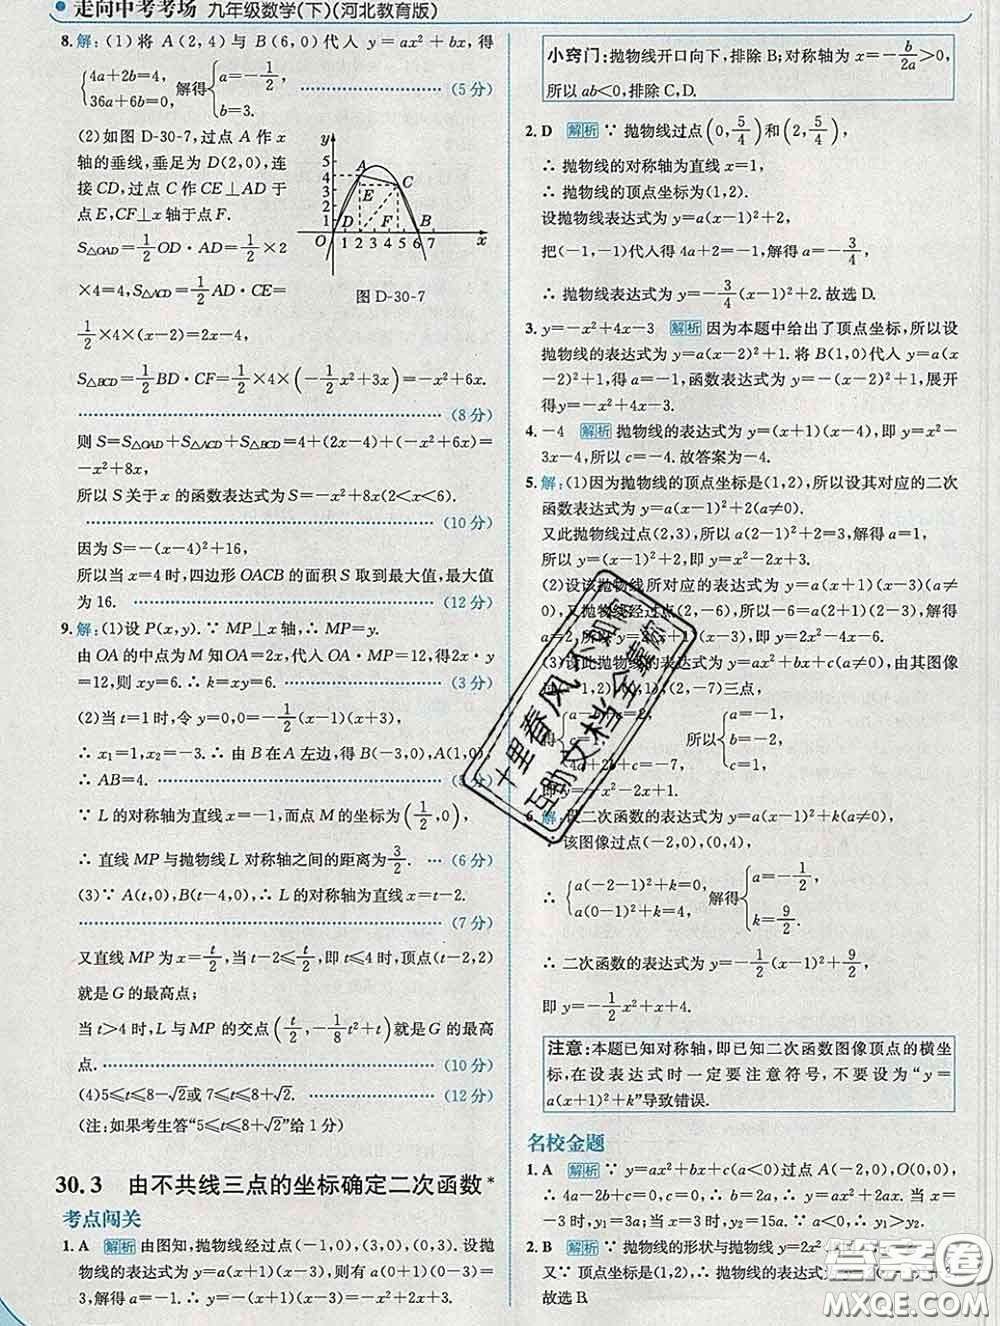 走向中考考场 九年级数学(下)(河北教育版)
8.解:(1)将A(2,4)与B(6,0)代入y=ax²+bx,得
{4a+2b=4, 36a+6b=0, 解得{a=-1/2, b=3. (5分)
(2)如图D-30-7,过点A作x
轴的垂线,垂足为D(2,0),连
接CD,过点C作CE⊥AD于
点E,CF⊥x轴于点F.
S△OAD=1/2OD·AD=1/2×2
×4=4,S△ACD=1/2AD·CE=
1/2×4×(x-2)=2x-4,
S△BCD=1/2BD·CF=1/2×4×(-1/2x²+3x)=-x²+6x.
5
4
3
2
1
A
E
C
D
F
B
O 1 2 3 4 5 6 7 x
图D-30-7
(8分)
则S=S△OAD+S△ACD+S△BCD=4+(2x-4)+(-x²+6x)=
-x²+8x,
所以S关于x的函数表达式为S=-x²+8x(2<x<6).
(10分)
因为S=-(x-4)²+16,
所以当x=4时,四边形OACB的面积S取到最大值,最大值
为16. (12分)
9.解:(1)设P(x,y).∵MP⊥x轴,∴MP=y.
由OA的中点为M知OA=2x,代入OA·MP=12,得2x·y
=12,则xy=6.∴k=xy=6. (3分)
(2)当t=1时,令y=0,0=-1/2(x-1)(x+3),
∴x₁=1,x₂=-3.∴由B在A左边,得B(-3,0),A(1,0),
∴AB=4.
∵L的对称轴为直线x=-1,而点M的坐标为(1/2,0),
∴直线MP与抛物线L对称轴之间的距离为3/2. (6分)
(3)∵A(t,0),B(t-4,0),∴L的对称轴为直线x=t-2.
(7分)
又直线MP为x=t/2,当t-2≤t/2,即t≤4时,顶点(t-2,2)
就是G的最高点;
当t>4时,L与MP的交点(t/2,-1/8t²+t)就是G的最高
点. (10分)
(4)5≤t≤8-√2或7≤t≤8+√2. (12分)
(注:如果考生答“5≤t≤8+√2”给1分)
30.3 由不共线三点的坐标确定二次函数*
考点闯关
1.A 解析 由图知,抛物线经过点(-1,0),(3,0),(0,3).设抛
物线的表达式为y=a(x+1)(x-3),则有a(0+1)(0-3)=
3,解得a=-1,∴y=-(x+1)(x-3)=-x²+2x+3.
小窍门:抛物线开口向下,排除B;对称轴为x=-b/2a>0,
所以ab<0,排除C,D.
2.D 解析 ∵抛物线过点(0,5/4)和(2,5/4),
∴抛物线的对称轴为直线x=1,
∴抛物线的顶点坐标为(1,2).
设抛物线表达式为y=a(x-1)²+2,
把(-1,-1)代入得4a+2=-1,解得a=-3/4,
∴抛物线表达式为y=-3/4(x-1)²+2.故选D.
3.y=-x²+4x-3 解析 因为本题中给出了顶点坐标,所以设
抛物线的表达式为y=a(x-2)²+1.将B(1,0)代入y=a(x
-2)²+1,得a=-1,函数表达式为y=-(x-2)²+1,展开
得y=-x²+4x-3.
4.-4 解析 抛物线的表达式为y=(x+1)(x-4),即y=x²-
3x-4,所以c=-4.故答案为-4.
5.解:(1)因为抛物线的顶点坐标是(1,2),所以设其对应的二次
函数表达式为y=a(x-1)²+2(a≠0).
又此抛物线过点(2,3),所以a(2-1)²+2=3,解得a=1,
所以y=(x-1)²+2,即y=x²-2x+3.
(2)设该抛物线所对应的表达式为y=a(x+1)(x-3)(a≠
0),又抛物线经过点(2,-6),所以-6=a(2+1)(2-3),解得
a=2,所以y=2(x+1)(x-3),即y=2x²-4x-6.
(3)设此抛物线的表达式为y=ax²+bx+c(a≠0),由其图像
过(-1,2),(0,1),(2,-7)三点,
得 c=1, 4a+2b+c=-7, 所以{a=-1, b=-2, c=1,
y=-x²-2x+1.
6.解:设二次函数的表达式为y=a(x-1)²+k(a≠0),
∵该图像过点(-2,0),(0,4),
∴{a(-2-1)²+k=0, a(0-1)²+k=4, 解得{a=-1/2, k=9/2.
∴二次函数的表达式为y=-1/2(x-1)²+9/2,
即y=-1/2x²+x+4.
注意:本题已知对称轴,即已知二次函数图像顶点的横坐
标,在设表达式时一定要注意符号,不要设为“y=
a(x+1)²+k”导致错误.
名校金题
1.A 解析 ∵y=ax²+bx+c过点A(2,0),O(0,0),
∴4a-2b=0,c=0,∴b=2a,∴y=ax²+2ax.当x=-3
时,y₁=3a;当x=3时,y₂=15a.∵a<0,∴y₁>y₂.
2.B 解析 ∵抛物线的形状与抛物线y=2x²
又∵顶点坐标是(1,2),∴抛物线的表达式为
故选B.
十里春风不如你
互助文档全靠你
答案圈
MXQE.COM